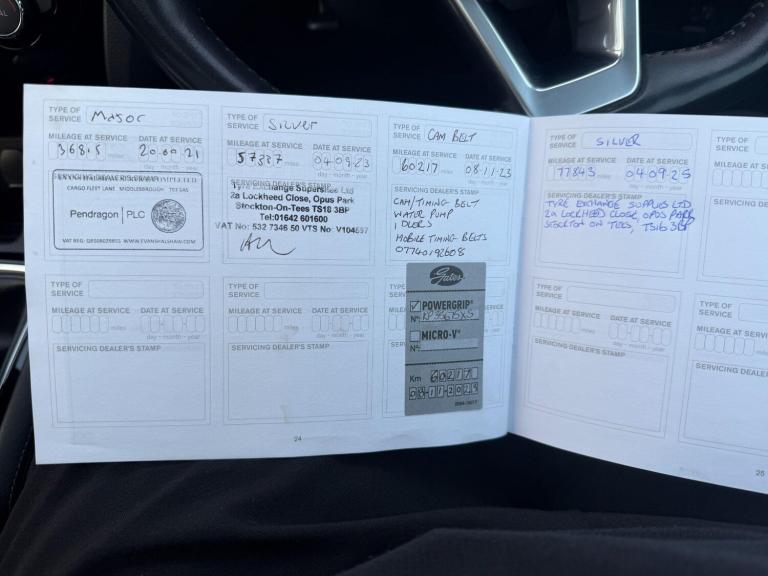 TYPE OF SERVICE Major
MILEAGE AT SERVICE DATE AT SERVICE
36815 miles 20 09 21
day - month - year
SERVICE COMPLETED
CARGO FLEET LANE MIDDLESBROUGH TS3 8AS
Pendragon PLC
VAT REG: WWW.EVANSHALSHAW.COM
TYPE OF SERVICE Silver
MILEAGE AT SERVICE DATE AT SERVICE
57337 miles 04 09 23
day - month - year
SERVICING DEALER'S STAMP
Tyre Exchange Supersites Ltd
2a Lockheed Close, Opus Park
Stockton-On-Tees TS18 3BF
Tel:01642 601600
VAT No: 532 7346 50 VTS No: V104697
TYPE OF SERVICE CAM BELT
MILEAGE AT SERVICE DATE AT SERVICE
60217 miles 08 11 23
day - month - year
SERVICING DEALER'S STAMP
CAM/TIMING BELT
WATER PUMP
IDLERS
MOBILE TIMING BELTS
07740192608
TYPE OF SERVICE
MILEAGE AT SERVICE DATE AT SERVICE
miles
day - month - year
SERVICING DEALER'S STAMP
TYPE OF SERVICE
MILEAGE AT SERVICE DATE AT SERVICE
miles
day - month - year
SERVICING DEALER'S STAMP
Gates
POWERGRIP®
Nº:
MICRO-V®
Nº:
Km 60217
08-11-2023
24
TYPE OF SERVICE SILVER
MILEAGE AT SERVICE DATE AT SERVICE
77843 miles 04 09 25
day - month - year
SERVICING DEALER'S STAMP
TYRE EXCHANGE SUPPLIES LTD
2A LOCKHEED CLOSE, OPUS PARK
STOCKTON ON TEES,
TYPE OF SERVICE
MILEAGE AT SERVICE
TYPE OF SERVICE
MILEAGE AT SERVICE DATE AT SERVICE
miles
day - month - year
SERVICING DEALER'S STAMP
TYPE OF SERVICE
MILEAGE AT SERVICE
SERVICING DEALER'S
25